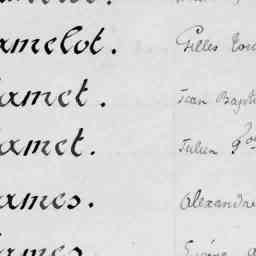 amelot. Gilles
amet. Jean Bapti
amet. Julien
ames. Alexandre
ames. Eugène